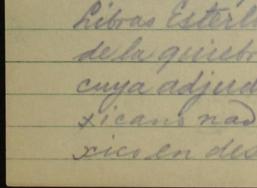 Libras Esterl
de la quiebr
cuya adjud
xicano nad
xico en des